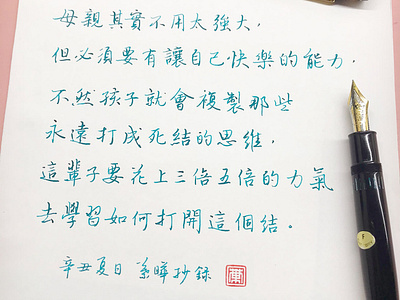 母親其實不用太強大，
但必須要有讓自己快樂的能力，
不然孩子就會複製那些
永遠打成死結的思維，
這輩子要花上三倍五倍的力氣
去學習如何打開這個結。
辛丑夏日 抄錄